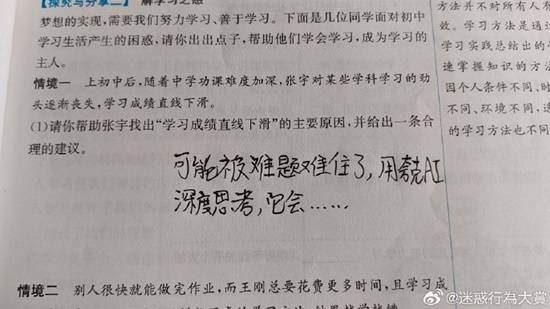 【探究与分享二】 解学习之惑
梦想的实现,需要我们努力学习、善于学习。下面是几位同学面对初中
学习生活产生的困惑,请你出出点子,帮助他们学会学习,成为学习的
主人。
情境一 上初中后,随着中学功课难度加深,张宇对某些学科学习的劲
头逐渐丧失,学习成绩直线下滑。
(1)请你帮助张宇找出“学习成绩直线下滑”的主要原因,并给出一条合
理的建议。
可能被难题难住了,用夸克AI
深度思考,它会……
情境二 别人很快就能做完作业,而王刚总要花费更多时间,且学习成
方法并不对所有人有
效。学习方法是通过
学习实践总结出的
速掌握知识的方法
因个人条件不同、时
不同、环境不同、
的学习方法也不同
@迷惑行為大賞